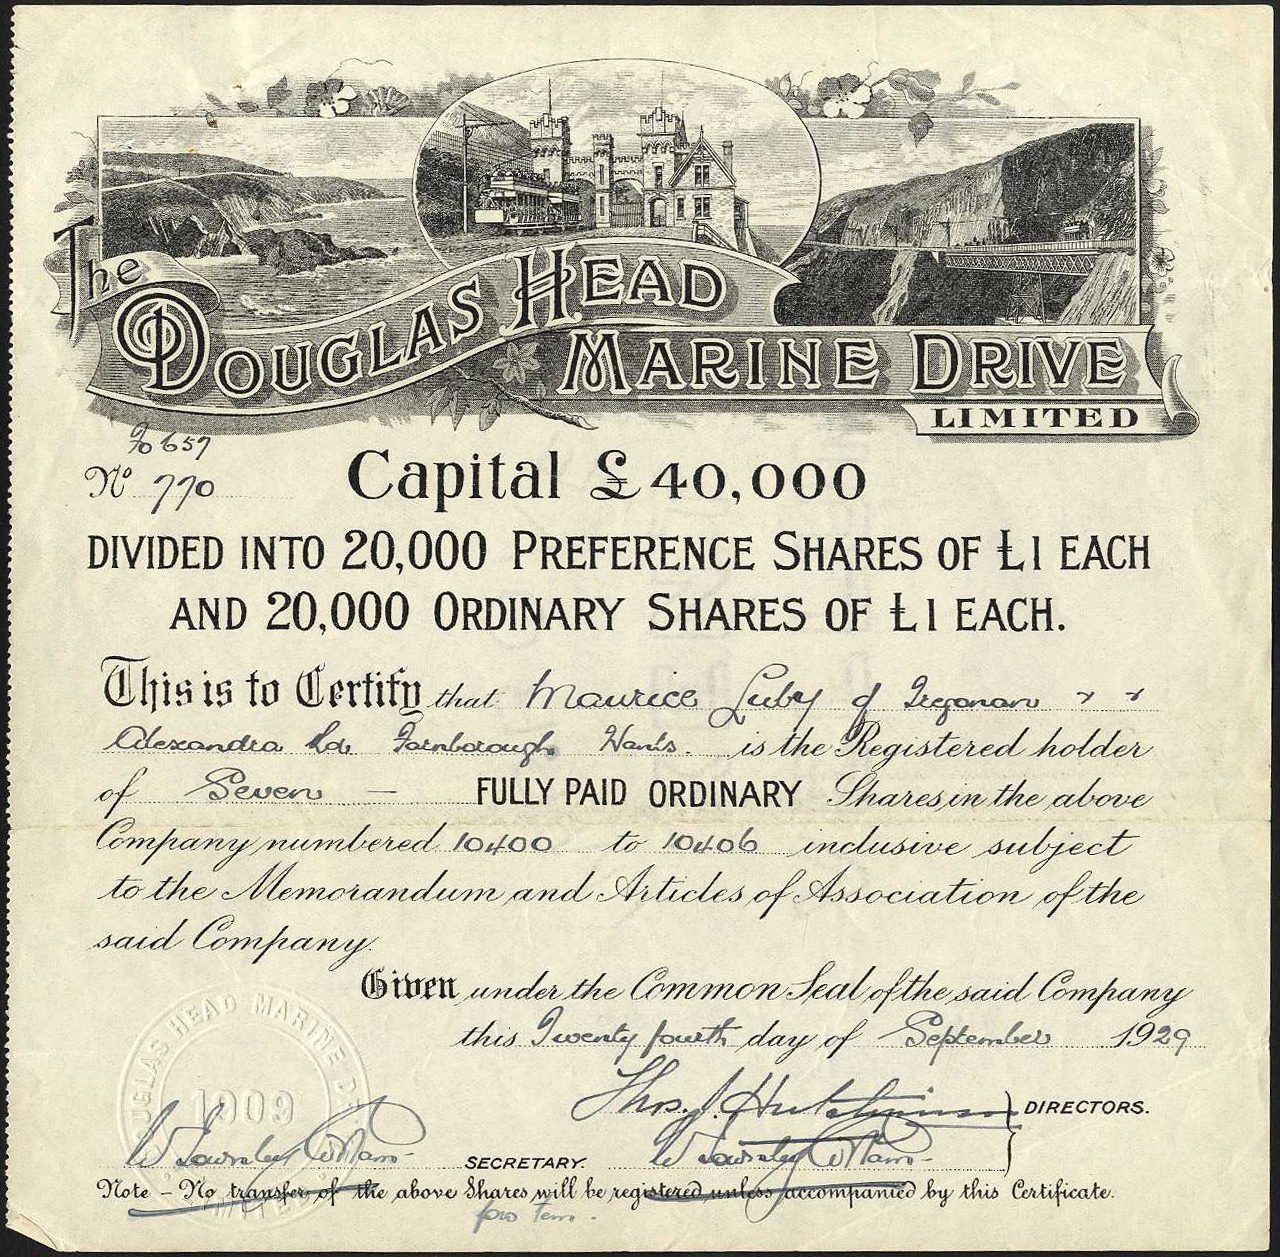 The
DOUGLAS HEAD
MARINE DRIVE
LIMITED
Fo 657
No 770
Capital £40,000
DIVIDED INTO 20,000 PREFERENCE SHARES OF £1 EACH
AND 20,000 ORDINARY SHARES OF £1 EACH.
This is to Certify that Maurice Luby of Tregonan
Alexandra Rd. Farnborough Hants. is the Registered holder
of Seven — FULLY PAID ORDINARY Shares in the above
Company numbered 10400 to 10406 inclusive subject
to the Memorandum and Articles of Association of the
said Company.
Given under the Common Seal of the said Company
this Twenty fourth day of September 1929
DOUGLAS HEAD MARINE
1909
LIMITED
Thos. J. Hutchinson DIRECTORS.
SECRETARY.
Note – No transfer of the above Shares will be registered unless accompanied by this Certificate.
pro tem.